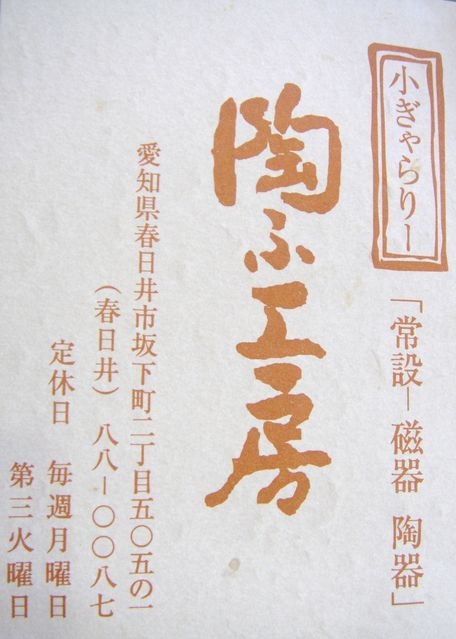 小ぎゃらりー
「常設－磁器 陶器」
陶ふ工房
愛知県春日井市坂下町二丁目五〇五の一
（春日井）八八－〇〇八七
定休日 毎週月曜日
第三火曜日